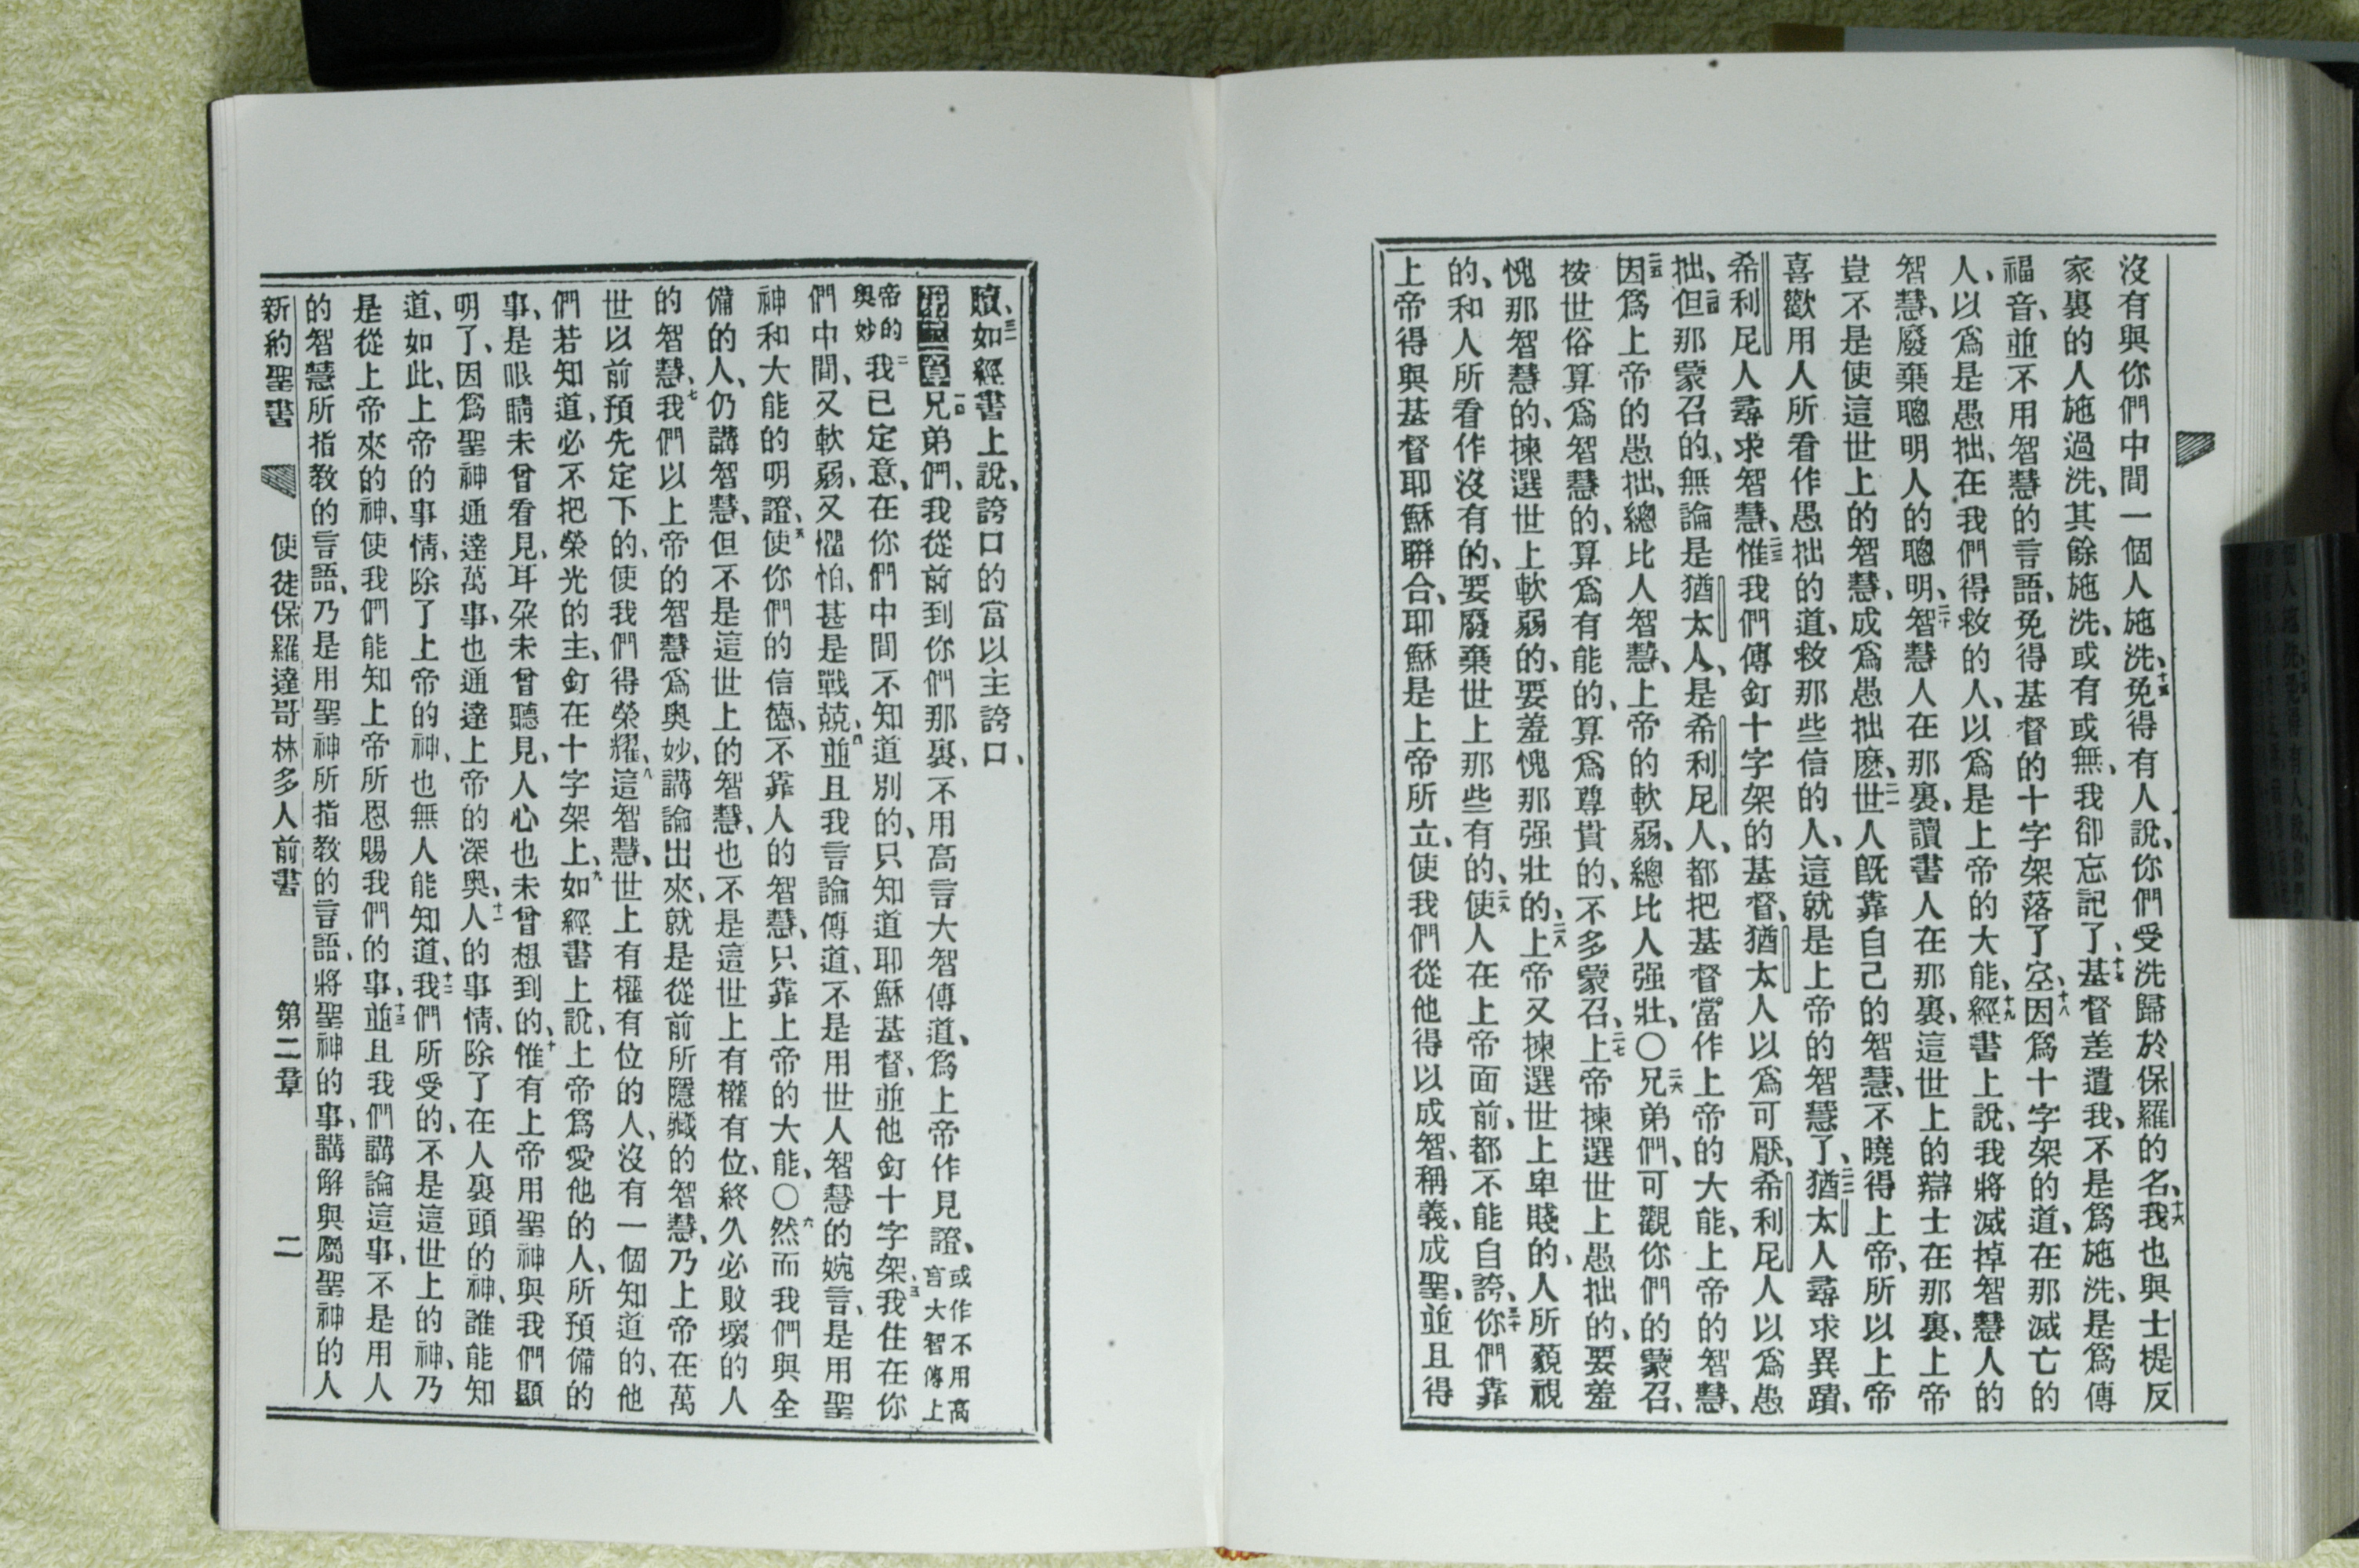 沒有與你們中間一個人施洗、十五免得有人說、你們受洗歸於保羅的名、十六我也與士提反
家裏的人施過洗、其餘施洗、或有或無、我卻忘記了、十七基督差遣我、不是爲施洗、是爲傳
福音、並不用智慧的言語、免得基督的十字架落了空、十八因爲十字架的道、在那滅亡的
人、以爲是愚拙、在我們得救的人、以爲是上帝的大能、十九經書上說、我將滅掉智慧人的
智慧、廢棄聰明人的聰明、二十智慧人在那裏、讀書人在那裏、這世上的辯士在那裏、上帝
豈不是使這世上的智慧、成爲愚拙麽、二一世人旣靠自己的智慧、不曉得上帝、所以上帝
喜歡用人所看作愚拙的道、救那些信的人、這就是上帝的智慧了、二二猶太人尋求異蹟、
希利尼人尋求智慧、二三惟我們傳釘十字架的基督、猶太人以爲可厭、希利尼人以爲愚
拙、二四但那蒙召的、無論是猶太人、是希利尼人、都把基督當作上帝的大能、上帝的智慧、
二五因爲上帝的愚拙、總比人智慧、上帝的軟弱、總比人强壯、〇二六兄弟們、可觀你們的蒙召、
按世俗算爲智慧的、算爲有能的、算爲尊貴的、不多蒙召、二七上帝揀選世上愚拙的、要羞
愧那智慧的、揀選世上軟弱的、要羞愧那强壯的、二八上帝又揀選世上卑賤的、人所藐視
的、和人所看作沒有的、要廢棄世上那些有的、二九使人在上帝面前、都不能自誇、三十你們靠
上帝得與基督耶穌聯合、耶穌是上帝所立、使我們從他得以成智、稱義、成聖、並且得
贖、三一如經書上說、誇口的當以主誇口、
第二章 一兄弟們、我從前到你們那裏、不用高言大智傳道、爲上帝作見證、或作不用高言大智傳上
帝的奧妙 二我已定意、在你們中間不知道別的、只知道耶穌基督、並他釘十字架、三我住在你
們中間、又軟弱、又懼怕、甚是戰兢、四並且我言論傳道、不是用世人智慧的婉言、是用聖
神和大能的明證、五使你們的信德、不靠人的智慧、只靠上帝的大能、〇六然而我們與全
備的人、仍講智慧、但不是這世上的智慧、也不是這世上有權有位、終久必敗壞的人
的智慧、七我們以上帝的智慧爲奧妙、講論出來、就是從前所隱藏的智慧、乃上帝在萬
世以前預先定下的、使我們得榮耀、八這智慧、世上有權有位的人、沒有一個知道的、他
們若知道、必不把榮光的主、釘在十字架上、九如經書上說、上帝爲愛他的人、所預備的
事、是眼睛未曾看見、耳朶未曾聽見、人心也未曾想到的、十惟有上帝用聖神與我們顯
明了、因爲聖神通達萬事、也通達上帝的深奧、十一人的事情、除了在人裏頭的神、誰能知
道、如此、上帝的事情、除了上帝的神、也無人能知道、十二我們所受的、不是這世上的神、乃
是從上帝來的神、使我們能知上帝所恩賜我們的事、十三並且我們講論這事、不是用人
的智慧所指教的言語、乃是用聖神所指教的言語、將聖神的事、講解與屬聖神的人
新約聖書 使徒保羅達哥林多人前書 第二章 二